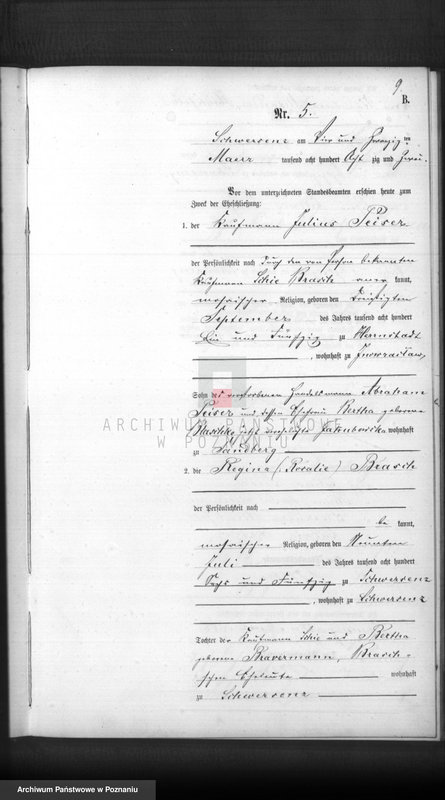 9.
B.
Nr. 5.
Schwersenz am Vier und Zwanzig ten
Maerz tausend acht hundert Acht zig und Zwei.
Vor dem unterzeichneten Standesbeamten erschien heute zum
Zweck der Eheschließung:
1. der Kaufmann Julius Peiser
der Persönlichkeit nach durch den von Person bekannten
Kaufmann Schie Brasch aner kannt,
mosaischer Religion, geboren den Dreißigten
September des Jahres tausend acht hundert
Ein und Fünfzig zu Herrnstadt
, wohnhaft zu Inowrazlaw
Sohn des verstorbenen Handelsmanns Abraham
Peiser und dessen Ehefrau Bertha geborene
jetzt Jakubowska wohnhaft
zu Sandberg
2. die Regina (: Rosalie :) Brasch
der Persönlichkeit nach
be kannt,
mosaischer Religion, geboren den Neunten
Juli des Jahres tausend acht hundert
Sechs und Fünfzig zu Schwersenz
, wohnhaft zu Schwersenz
Tochter der Kaufmann Schie und Bertha
geborene Bravermann, Brasch-
schen Eheleute wohnhaft
zu Schwersenz
ARCHIWUM PAŃSTWOWE
W POZNANIU
Archiwum Państwowe w Poznaniu